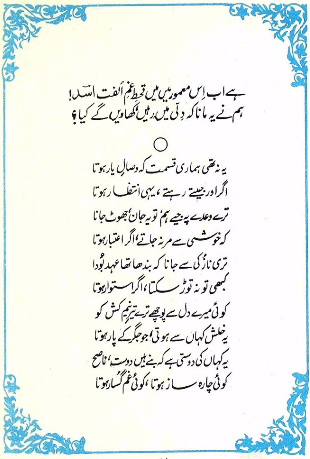 ہے اب اِس معمورہ میں قحطِ غمِ اُلفت اسدؔ!
ہم نے یہ مانا کہ دِلّی میں رہیں، کھاویں گے کیا؟
یہ نہ تھی ہماری قسمت کہ وصالِ یار ہوتا
اگر اور جیتے رہتے، یہی انتظار ہوتا
ترے وعدے پہ جیے ہم تو یہ جان، جھوٹ جانا
کہ خوشی سے مر نہ جاتے، اگر اعتبار ہوتا
تری نازُکی سے جانا کہ بندھا تھا عہد بُودا
کبھی تو نہ توڑ سکتا، اگر استوار ہوتا
کوئی میرے دل سے پوچھے ترے تیرِ نیم کش کو
یہ خلش کہاں سے ہوتی، جو جگر کے پار ہوتا
یہ کہاں کی دوستی ہے کہ بنے ہیں دوست، ناصح
کوئی چارہ ساز ہوتا، کوئی غم گسار ہوتا